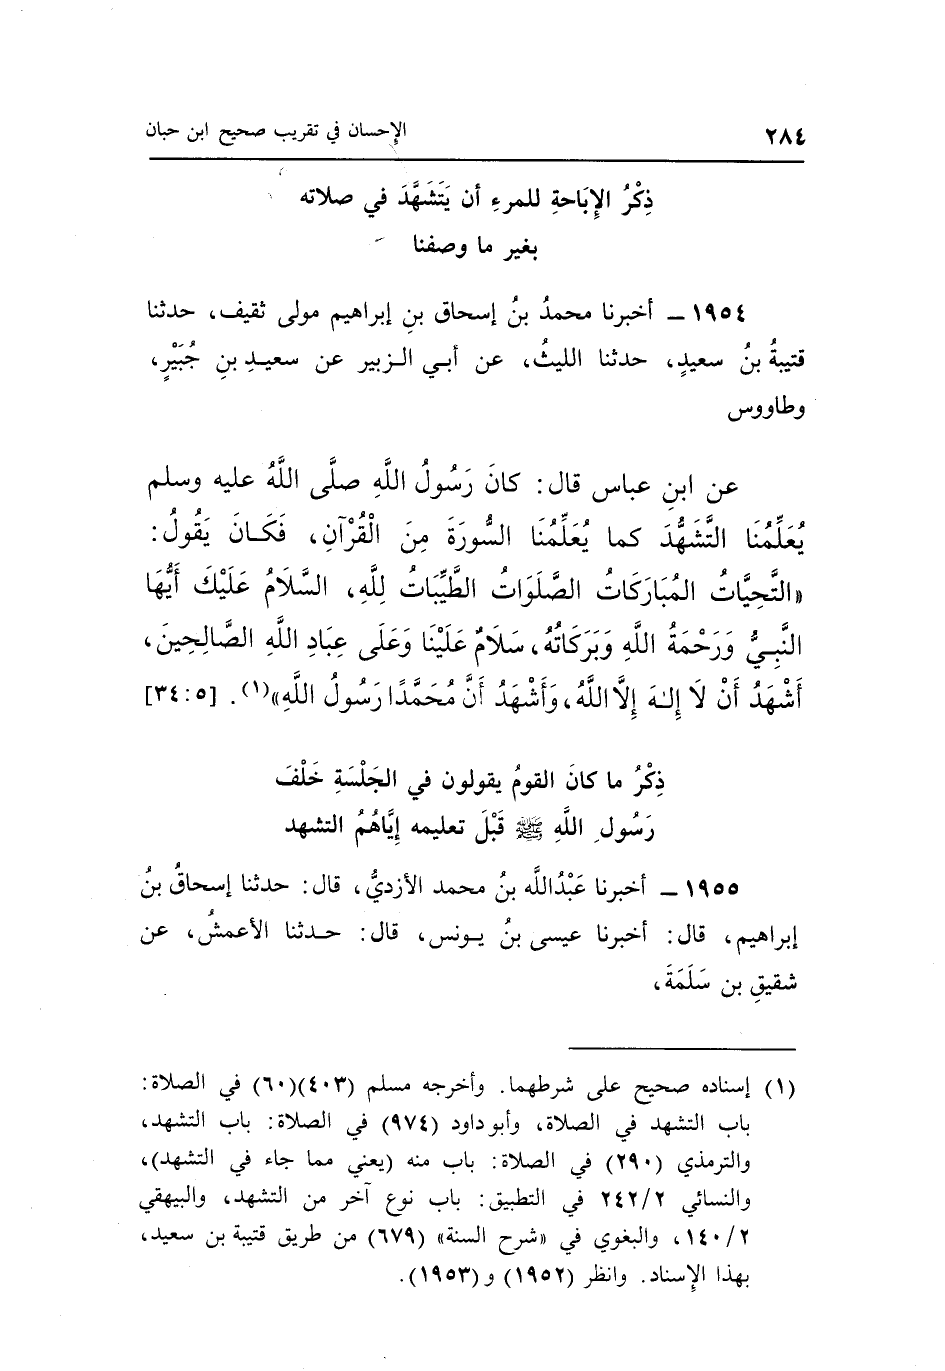 ٢٨٤ الإحسان في تقريب صحيح ابن حبان
ذِكْرُ الإِبَاحةِ للمرءِ أن يَتَشَهَّدَ في صلاته
بغير ما وصفنا
١٩٥٤ ــ أخبرنا محمدُ بنُ إسحاق بنِ إبراهيم مولى ثقيف، حدثنا
قتيبةُ بنُ سعيدٍ، حدثنا الليثُ، عن أبي الزبير عن سعيدِ بنِ جُبَيْرٍ،
وطاووس
عن ابنِ عباس قال: كانَ رَسُولُ اللَّهِ صلَّى اللَّهُ عليه وسلم
يُعَلِّمُنَا التَّشَهُّدَ كما يُعَلِّمُنَا السُّورَةَ مِنَ الْقُرْآنِ، فَكَانَ يَقُولُ:
«التَّحِيَّاتُ المُبَارَكَاتُ الصَّلَوَاتُ الطَّيِّبَاتُ لِلَّهِ، السَّلَامُ عَلَيْكَ أَيُّهَا
النَّبِيُّ وَرَحْمَةُ اللَّهِ وَبَرَكَاتُهُ، سَلَامٌ عَلَيْنَا وَعَلَى عِبَادِ اللَّهِ الصَّالِحِينَ،
أَشْهَدُ أَنْ لَا إِلٰهَ إِلَّا اللَّهُ، وَأَشْهَدُ أَنَّ مُحَمَّدًا رَسُولُ اللَّهِ»(١). [٣٤:٥]
ذِكْرُ ما كانَ القومُ يقولون في الجَلْسَةِ خَلْفَ
رَسُولِ اللَّهِ ﷺ قَبْلَ تعليمه إيَّاهُمُ التشهد
١٩٥٥ ــ أخبرنا عَبْدُاللَّه بنُ محمد الأزديُّ، قال: حدثنا إسحاقُ بنُ
إبراهيم، قال: أخبرنا عيسى بنُ يونس، قال: حدثنا الأعمشُ، عن
شقيقِ بن سَلَمَةَ،
(١) إسناده صحيح على شرطهما. وأخرجه مسلم (٤٠٣)(٦٠) في الصلاة:
باب التشهد في الصلاة، وأبو داود (٩٧٤) في الصلاة: باب التشهد،
والترمذي (٢٩٠) في الصلاة: باب منه (يعني مما جاء في التشهد)،
والنسائي ٢٤٢/٢ في التطبيق: باب نوع آخر من التشهد، والبيهقي
١٤٠/٢، والبغوي في «شرح السنة» (٦٧٩) من طريق قتيبة بن سعيد،
بهذا الإسناد. وانظر (١٩٥٢) و(١٩٥٣).